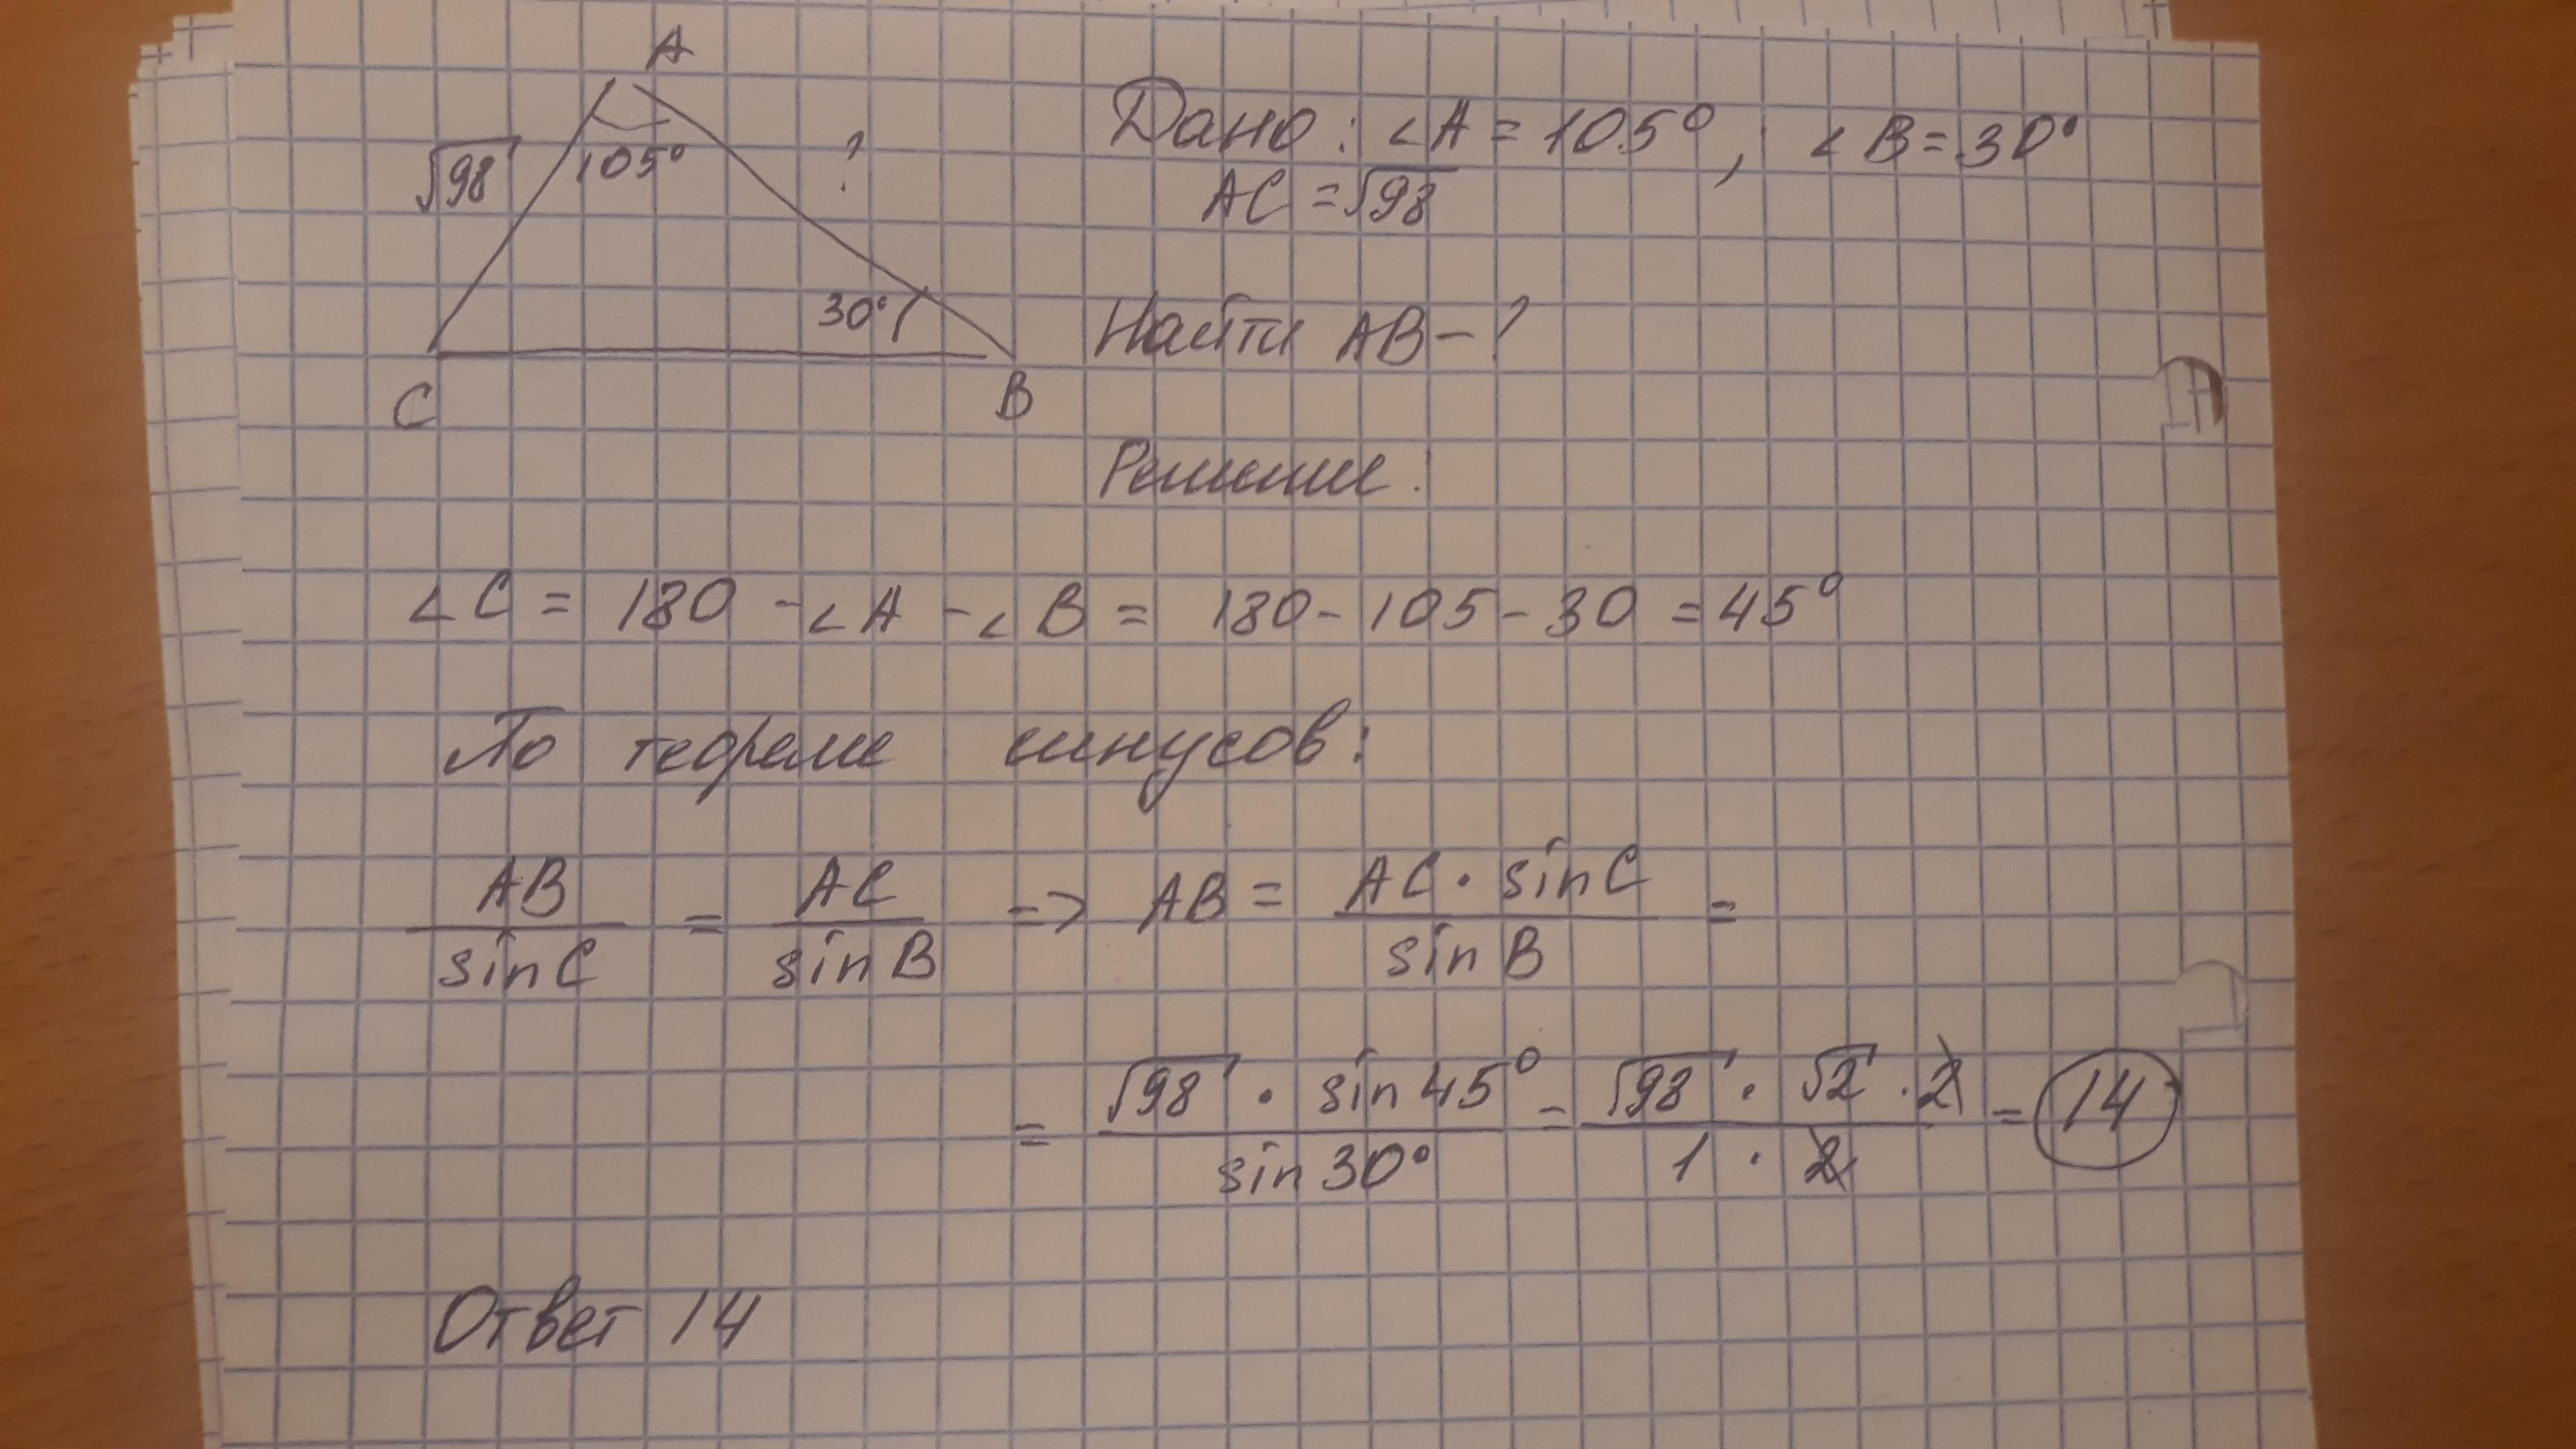 A
√98
105°
?
30°
C
B
Дано: ∠A = 105°, ∠B = 30°
AC = √98
Найти AB - ?
Решение:
∠C = 180 - ∠A - ∠B = 180 - 105 - 30 = 45°
По теореме синусов:
AB/sinC = AC/sinB => AB = AC · sinC/sinB =
= √98 · sin45°/sin30° = √98 · √2 · 2/1 · 2 = 14
Ответ 14